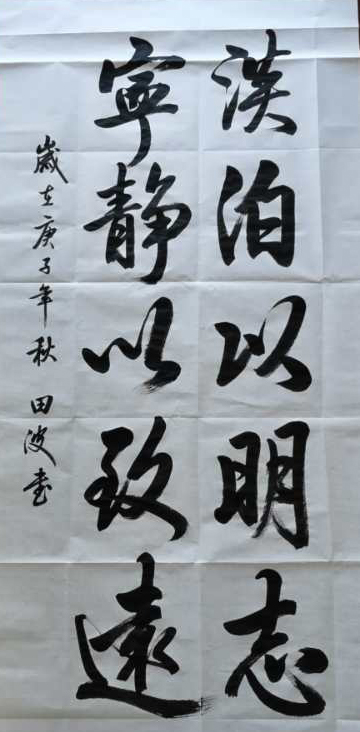 淡泊以明志
寧静以致遠
歲在庚子年秋 田波书